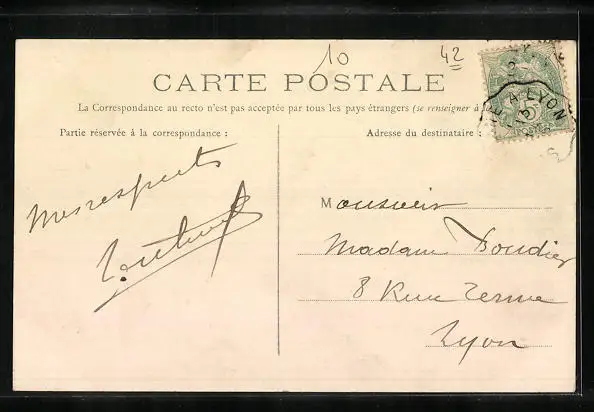 10
42
CARTE POSTALE
La Correspondance au recto n'est pas acceptée par tous les pays étrangers (se renseigner à la
Partie réservée à la correspondance :
Adresse du destinataire :
A LYON
5
POSTES
Mes respects
Monsieur
Madame Boudier
8 Rue Terme
Lyon